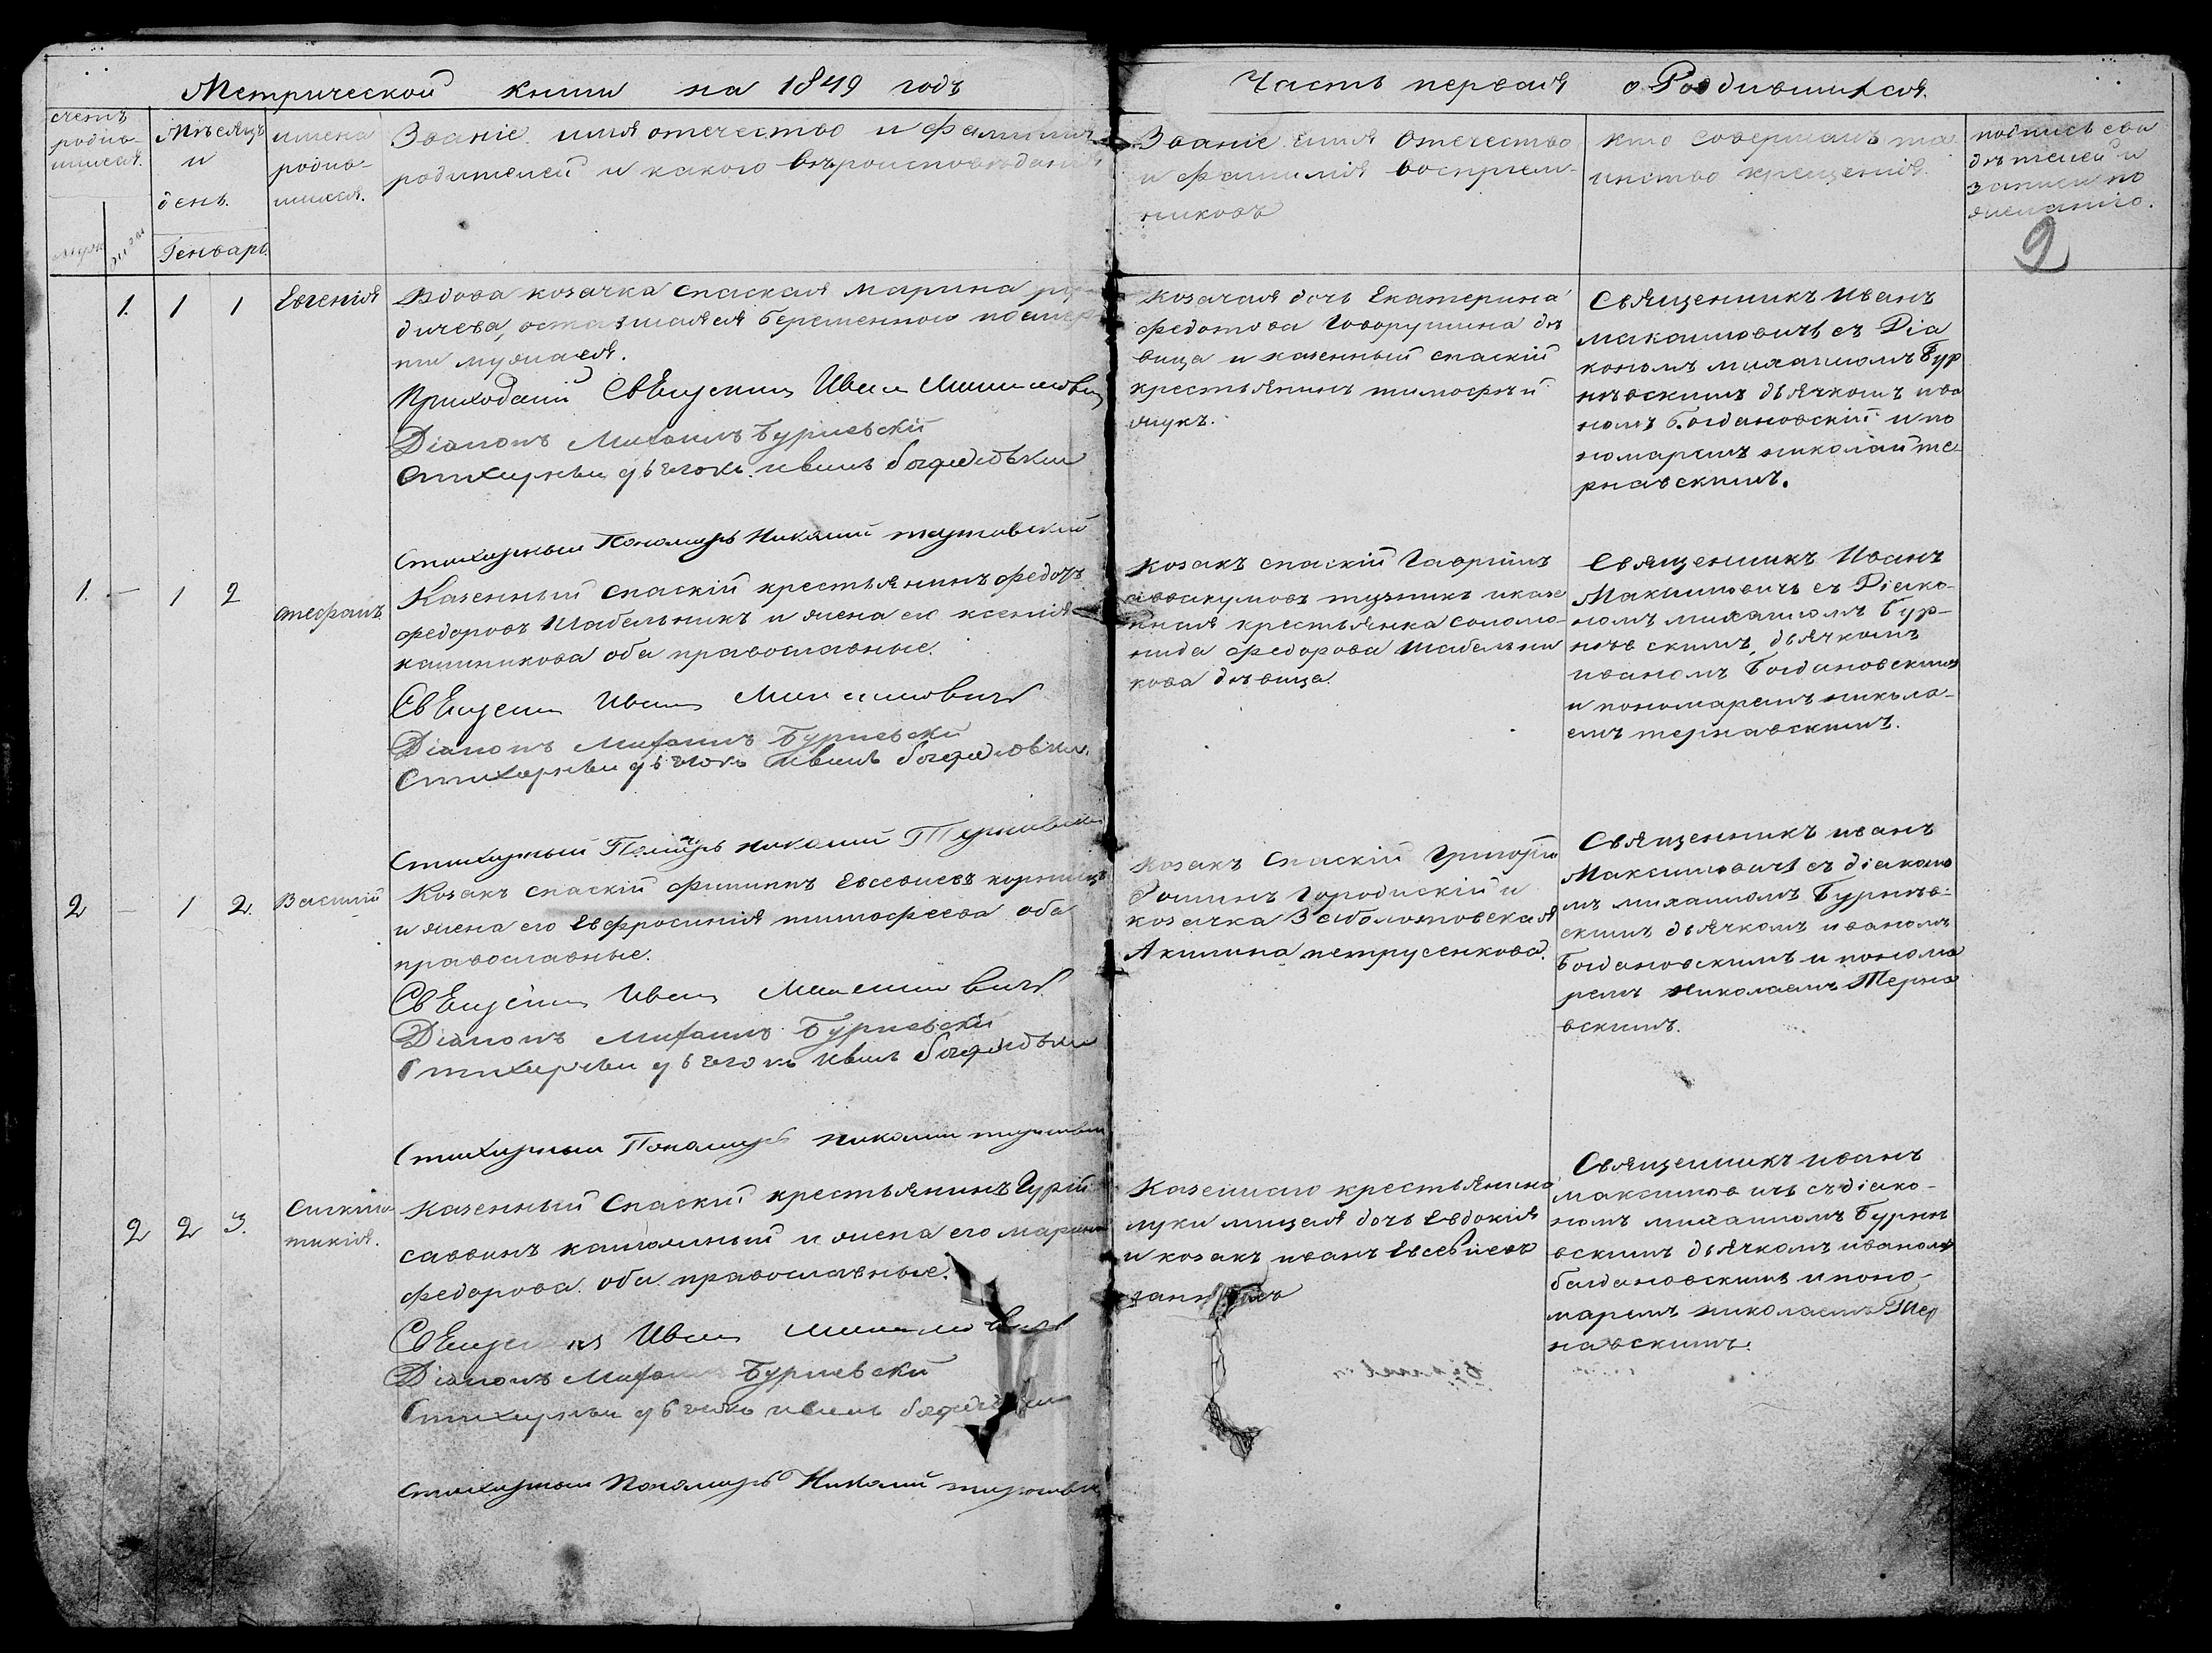 Метрической книги на 1849 годъ
Часть первая о Родившихся.
счетъ родив-
шихся.
Мѣсяцъ
и
день.
Генварь.
имена
родив-
шихся.
Званіе имя отечество и фамилія
родителей и какого вѣроисповѣданія
Званіе имя отечество
и фамилія воспріем-
никовъ
кто совершалъ та
инство крещенія.
подпись сви
дѣтелей и
записи по
желанію.
2
1. 1 1
Евгенія
Вдова козачка спаская Марина
дичева, оставшаяся беременною по смер
ти мужа ея.
Приходскій Священникъ Иванъ Максимович
Діаконъ Михаилъ Бурневскій
Стихарный дьячокъ Иванъ Богдановскій
Стихарный Пономарь Николай Терновский
Козачая дочь Екатерина
федотова Говорушина дѣ
вица и казенный спаскій
крестьянинъ тимофѣй
жукъ.
Священникъ Иванъ
Максимовичъ съ Діа
кономъ михаиломъ Бур
нѣвскимъ дьячкомъ ива
номъ Богдановскій и по
номаремъ николай те-
рнавскимъ.
1. — 1 2
стефанъ
Казенный спаскій крестьянинъ федотъ
федоровъ Шабельникъ и жена его ксенія
калиникова оба православные.
Священникъ Иванъ Максимовичъ
Діаконъ Михаилъ Бурневскій
Стихарный дьячокъ Иванъ Богдановскій
Стихарный Пономарь Николай Терновский
Козакъ спаскій Гавріилъ
аввакумовъ тузникъ и казе
нная крестьянка соломо-
нида федорова шабельни
кова дѣвица.
Священникъ Иванъ
Максимовичъ съ Діако-
номъ михаиломъ Бур-
нѣвскимъ, дьячкомъ
иваномъ Богдановскимъ
и пономаремъ никола-
емъ тернавскимъ.
2 — 1 2.
Василій
Козакъ спаскій филиппъ Евсевіевъ
и жена его Евфросинія тимофеева оба
православные.
Священникъ Иванъ Максимовичъ
Діаконъ Михаилъ Бурневскій
Стихарный дьячокъ Иванъ Богдановскій
Стихарный Пономарь Николай
Козакъ Спаскій Григорій
Фоминъ Городискій и
козачка Заболотовская
Акилина петрусенкова.
Священникъ иванъ
Максимовичъ съ діконо
мъ михаиломъ Бурнѣв-
скимъ дьячкомъ иваномъ
Богдановскимъ и понома
ремъ николаемъ Терна
вскимъ.
2 2 3.
Синкли-
тикія.
Казенный Спаскій крестьянинъ Гурій
саввинъ и жена его марина
федорова. оба православные.
Священникъ Иванъ Максимовичъ
Діаконъ Михаилъ Бурневскій
Стихарный дьячокъ Иванъ Богдановскій
Стихарный Пономарь Николай
Казеннаго крестьянина
луки мицая дочь Евдокія
и козакъ иванъ Евсевіевъ
Священникъ иванъ
максимовичъ съ діако-
номъ михаиломъ Бурнѣ
вскимъ дьячкомъ иваномъ
багдановскимъ и поно-
маремъ николаемъ Тер
навскимъ.